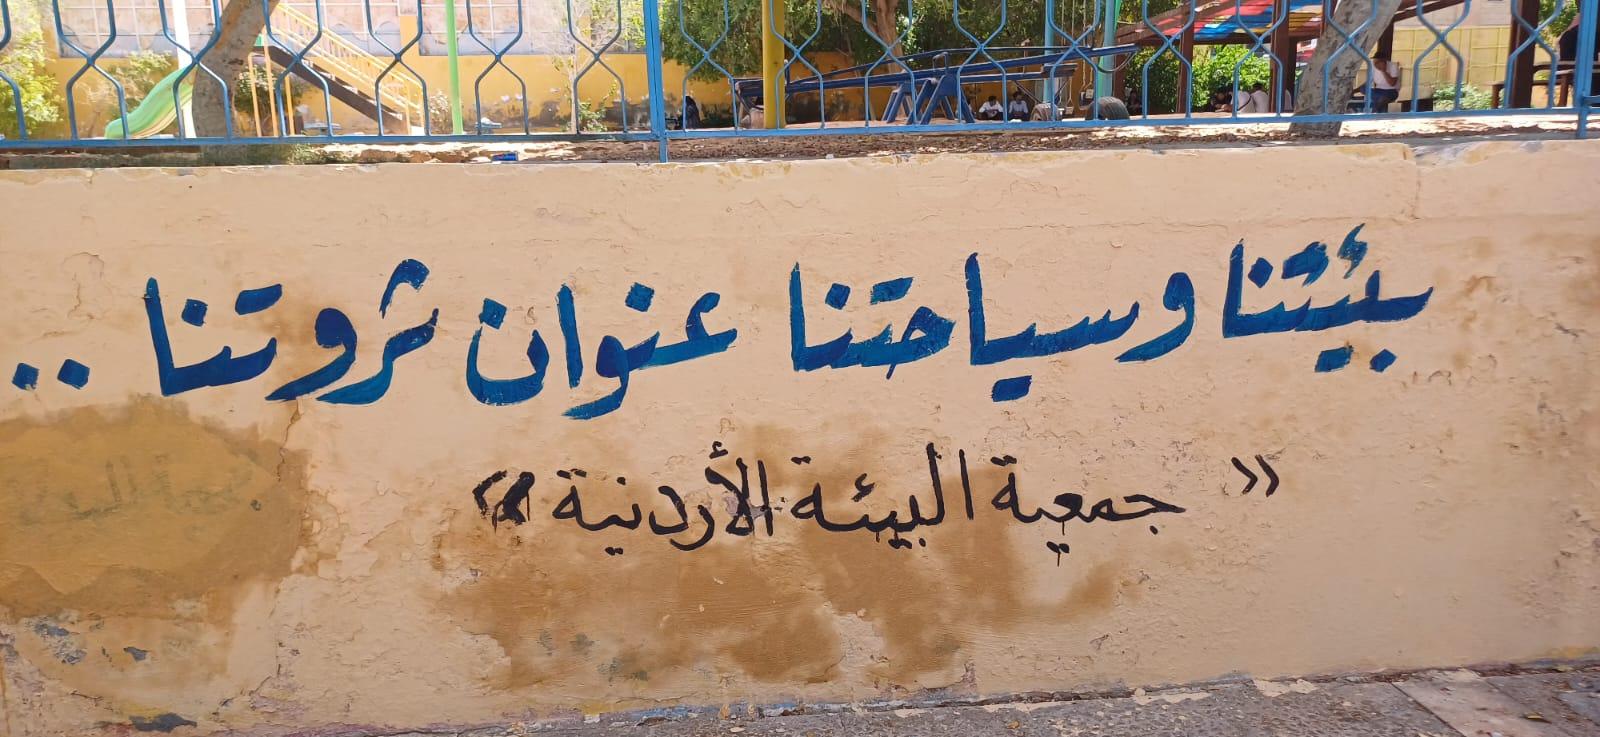 بيئتنا وسياحتنا عنوان ثروتنا ..
« جمعية البيئة الأردنية »